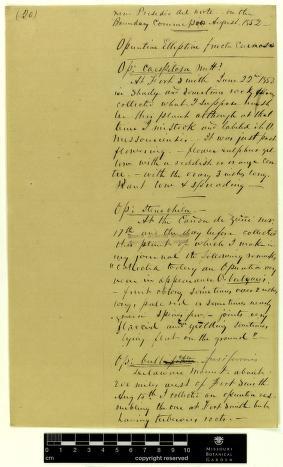 (20)
near Presidio del Norte – on the
Boundary Comm August 1852
Opuntia Elliptica fructu Carnoso
Op: caespitosa
At Fort Smith June 22nd 1853
in shady and sometimes rocky places
collected what I suppose must
be this plant although at that
time I mistook and labeled it O.
Missouriensis. – It was just past
flowering. – flower sulphur yel
low with a reddish or orange cen
tre. – with the ovary 3 inches long.
Plant low & spreading –
Op: Stenochila –
At the Cañon de Zuñi Nov.
17th and the day before collected
this plant of which I make in
my journal the following remark,
"collected today an Opuntia very
near in appearance O.
fruit oblong sometimes over 2 inches
long, pale red or sometimes nearly
green spineless – joints very
flaccid and yielding sometimes
lying flat on the ground."
Op: fusiformis
Delaware Mount. about
200 miles west of Fort Smith
Aug 10th I collected an opuntia res
embling the one at Fort Smith but
having tuberous roots. –
0 1 2 3 4 5 6 7 8 9 10
MISSOURI
BOTANICAL
GARDEN